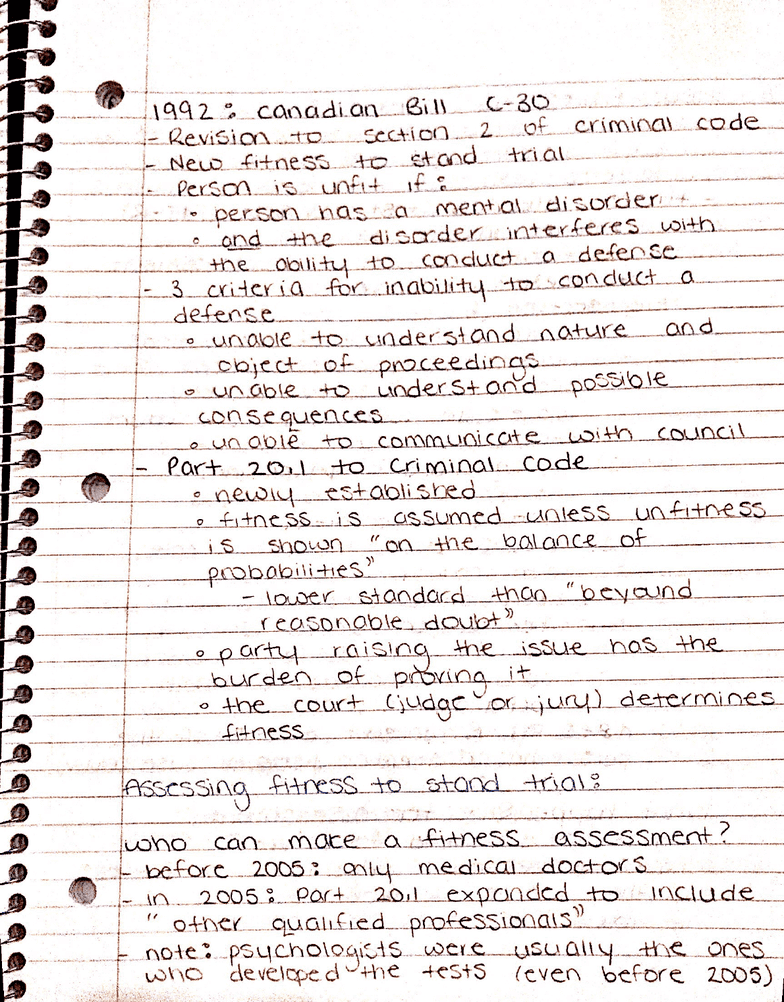 1992: Canadian Bill C-30
- Revision to section 2 of criminal code
- New fitness to stand trial
- Person is unfit if:
◦ person has a mental disorder
◦ and the disorder interferes with
the ability to conduct a defense
- 3 criteria for inability to conduct a
defense
◦ unable to understand nature and
object of proceedings
◦ unable to understand possible
consequences
◦ unable to communicate with council
- Part 20.1 to Criminal code
◦ newly established
◦ fitness is assumed unless unfitness
is shown "on the balance of
probabilities"
- lower standard than "beyound
reasonable doubt"
◦ party raising the issue has the
burden of proving it
◦ the court (judge or jury) determines
fitness
Assessing fitness to stand trial:
who can make a fitness assessment?
- before 2005: only medical doctors
- in 2005: Part 20.1 expanded to include
"other qualified professionals"
- note: psychologists were usually the ones
who developed the tests (even before 2005)